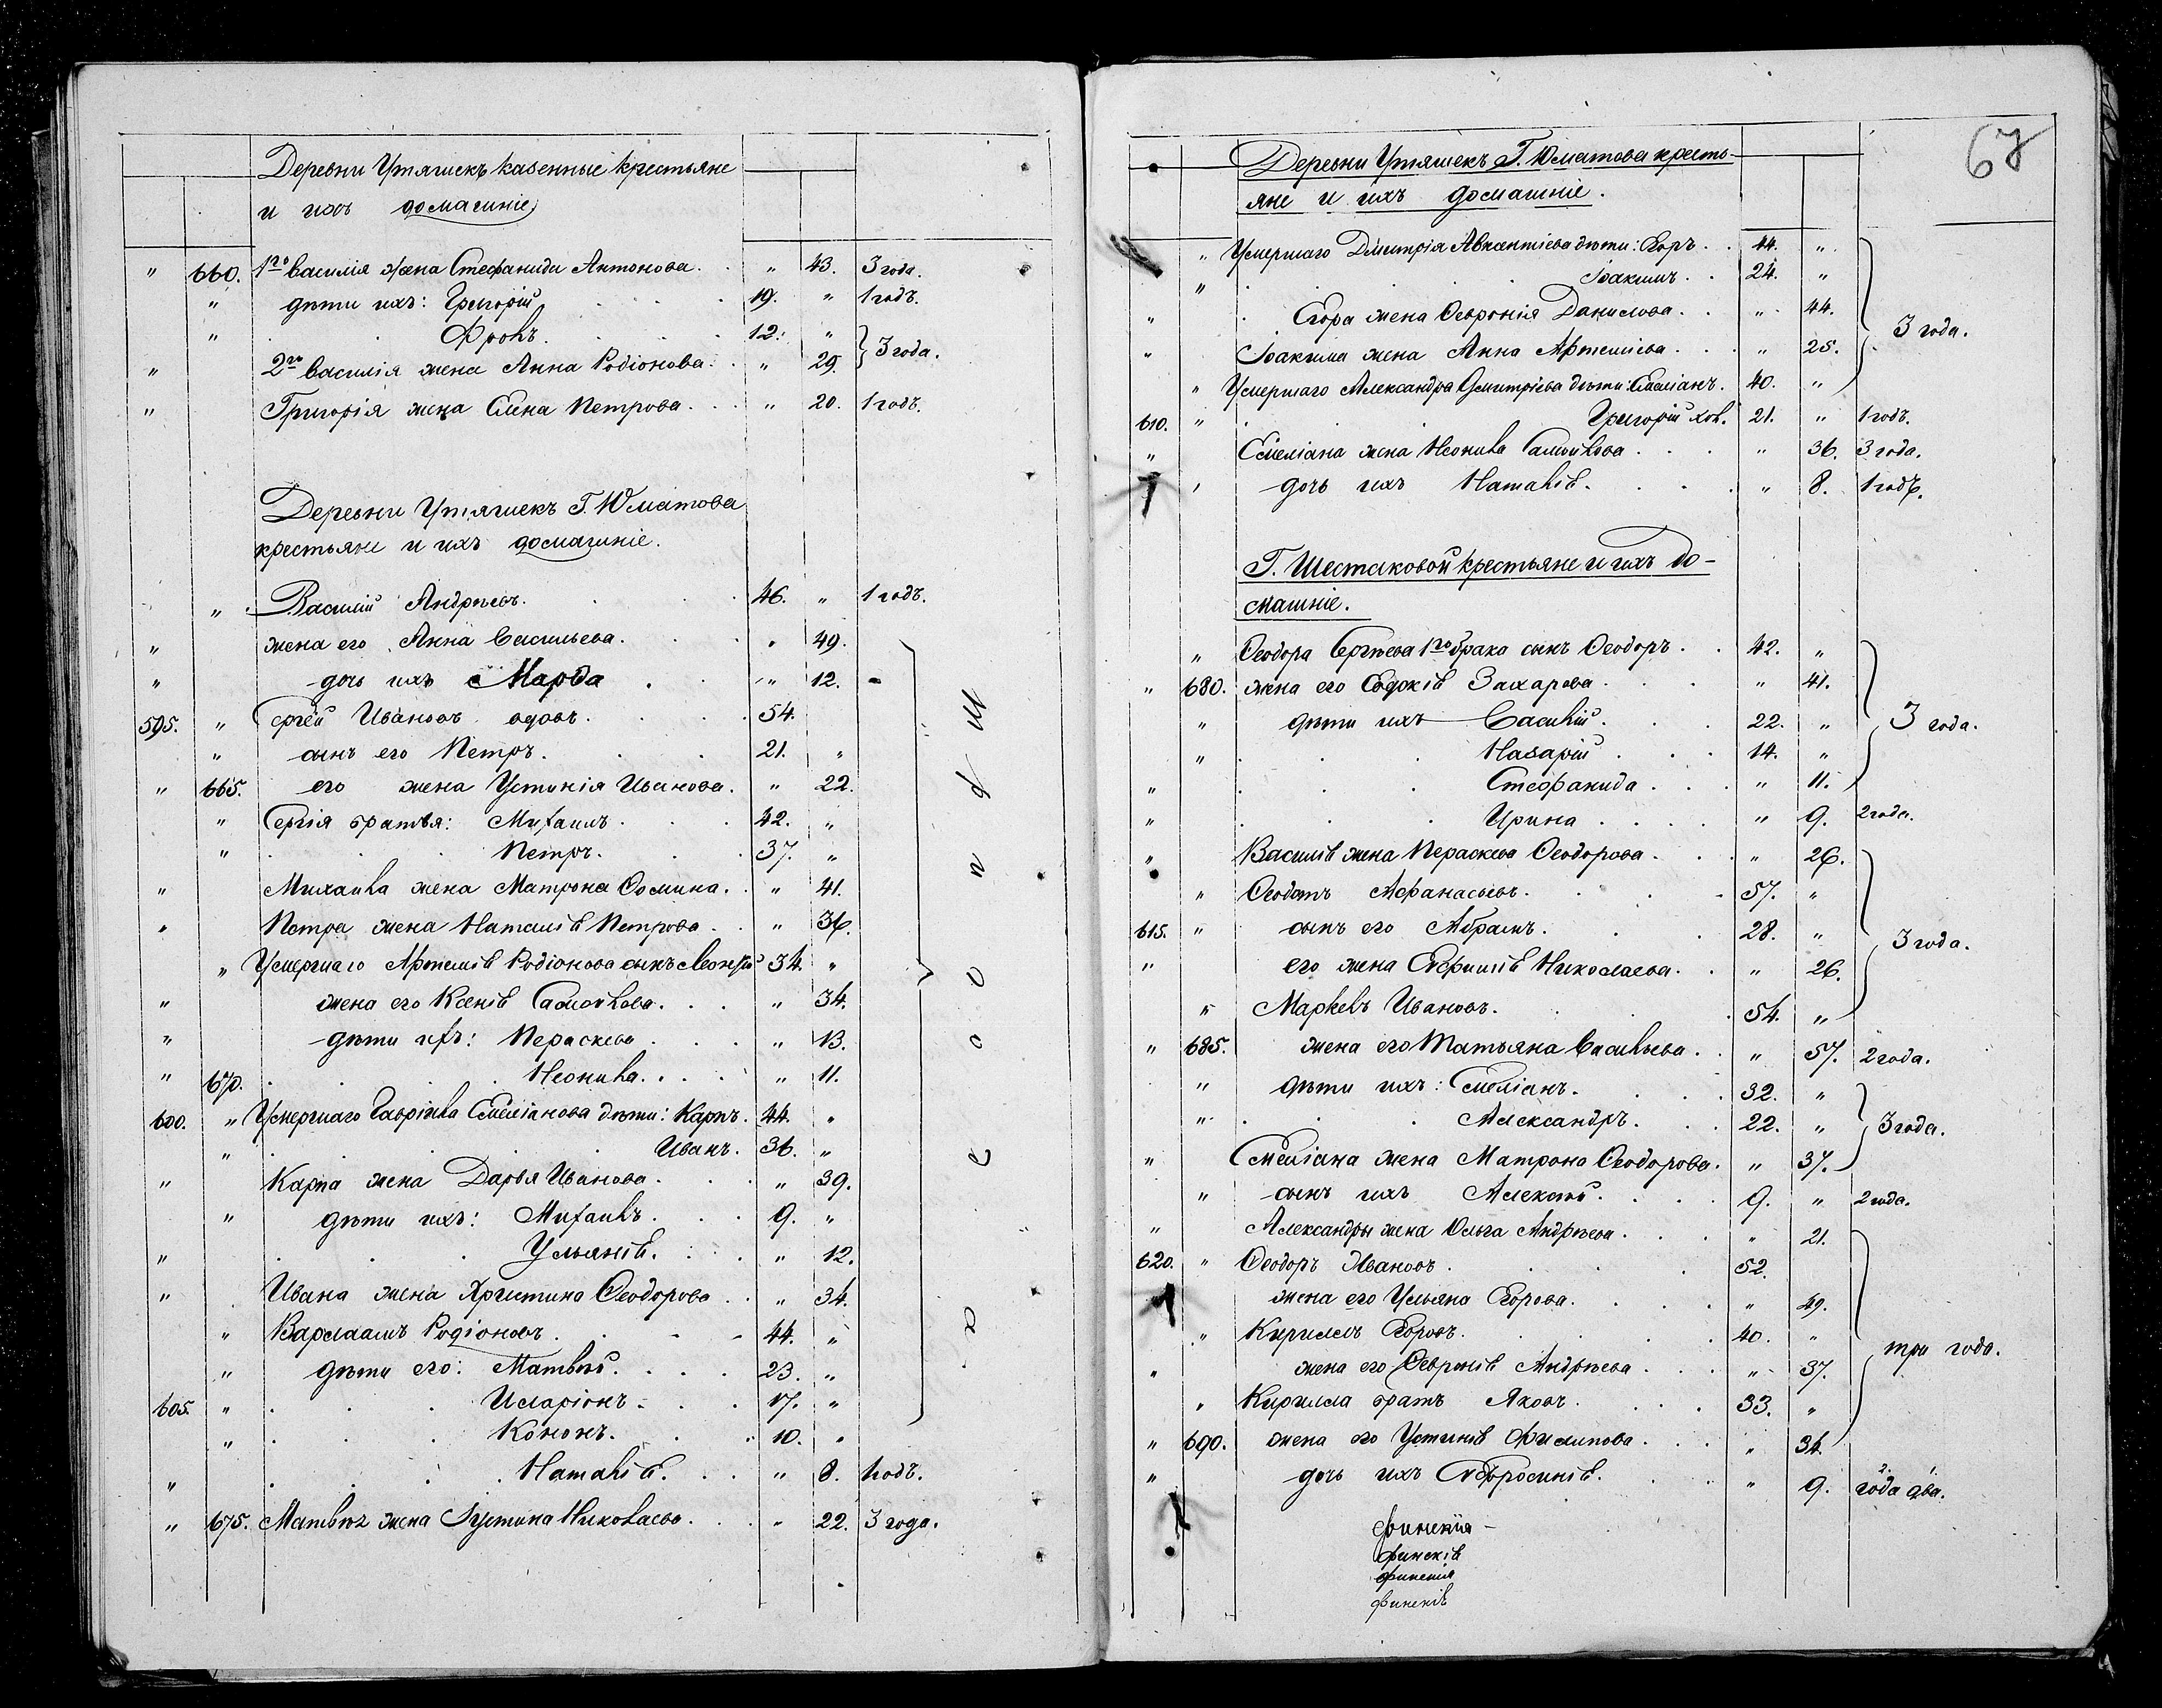 Деревни Утяшекъ казенные крестьяне
и ихъ домашніе
" 660. 1го Василія жена Стефанида Антонова. " 43. 3 года.
" дѣти ихъ: Григорій 19. " 1 годъ.
" Фролъ. 12. "
" 2го Василія жена Анна Родіонова. " 29. 3 года.
" Григорія жена Елена Петрова. " 20. 1 годъ.
Деревни Утяшекъ Г. Юматова
крестьяне и ихъ домашніе.
" Василій Андрѣевъ. 46. " 1 годъ.
" жена его Анна Васильева. " 49.
" дочь ихъ Марѳа " 12.
595. " Сергѣй Ивановъ вдовъ. 54.
" сынъ его Петръ. 21. "
" 665. его жена Устинія Иванова. " 22.
" Сергія братья: Михаилъ 42. "
" Петръ. 37. "
" Михаила жена Матрона Ѳомина. " 41.
" Петра жена Наталія Петрова " 36.
" Умершаго Артемія Родіонова сынъ 34. "
" жена его Ксенія Самойлова. " 34.
" дѣти ихъ: Параскева " 13.
" 670. Неонила. " 11.
600. " Умершаго Гавріила Емеліанова дѣти: Карпъ. 44. "
" Иванъ. 36. "
" Карпа жена Дарья Иванова. " 39.
" дѣти ихъ: Михаилъ. 9. "
" Ульянія. " 12.
" Ивана жена Христина Ѳеодорова " 34.
" Варлаамъ Родіоновъ. 44. "
" дѣти его: Матвѣй. 23. "
605. " Иларіонъ. 17. "
" Кононъ. 10. "
" Наталія. " 8. 1 годъ.
" 675. Матвѣя жена Устина Николаева. " 22. 3 года.
67
Деревни Утяшекъ Г. Юматова кресть-
яне и ихъ домашніе.
" Умершаго Димитрія Авксентіева дѣти: Егоръ. 44. "
" Іоакимъ. 24. "
" Егора жена Ѳевронія Данилова. " 44.
3 года.
" Іоакима жена Анна Артеміева. " 25.
" Умершаго Александра Димитріева дѣти: Емеліанъ. 40. "
610. " Григорій хол. 21. " 1 годъ.
" Емеліана жена Неонила Самойлова " 36. 3 года.
" дочь ихъ Наталія. " 8. 1 годъ.
Г. Шестаковой крестьяне и ихъ до-
машніе.
" Ѳеодора Сергѣева 1го брака сынъ Ѳеодоръ. 42. "
" 680. жена его Евдокія Захарова " 41.
" дѣти ихъ Василій. 22. " 3 года.
" Назарій 14. "
" Стефанида " 11.
" Ирина " 9. 2 года.
" Василія жена Параскева Ѳеодорова " 26.
" Ѳеодотъ Аѳанасьевъ. 57. "
615. " сынъ его Абрамъ. 28. " 3 года.
" его жена Евфимія Николаева. " 26.
" Маркелъ Ивановъ. 54. "
" 685. жена его Татьяна Васильева. " 57. 2 года.
" дѣти ихъ: Емеліанъ. 32. "
" Александръ. 22. " 3 года.
" Емеліана жена Матрона Ѳеодорова. " 37.
" сынъ ихъ Алексѣй. 9. " 2 года.
" Александры жена Ольга Андрѣева " 21.
620. " Ѳеодоръ Ивановъ. 52.
жена его Ульяна Егорова. " 49.
" Кириллъ Егоровъ. 40. "
три года.
" жена его Ѳевронія Андрѣева " 37.
" Кирилла братъ Яковъ. 33. "
" 690. жена его Устинія Филипова " 34.
" дочь ихъ Евфросинія. " 9. года два.
финенія -
финенія
финенія
финенія